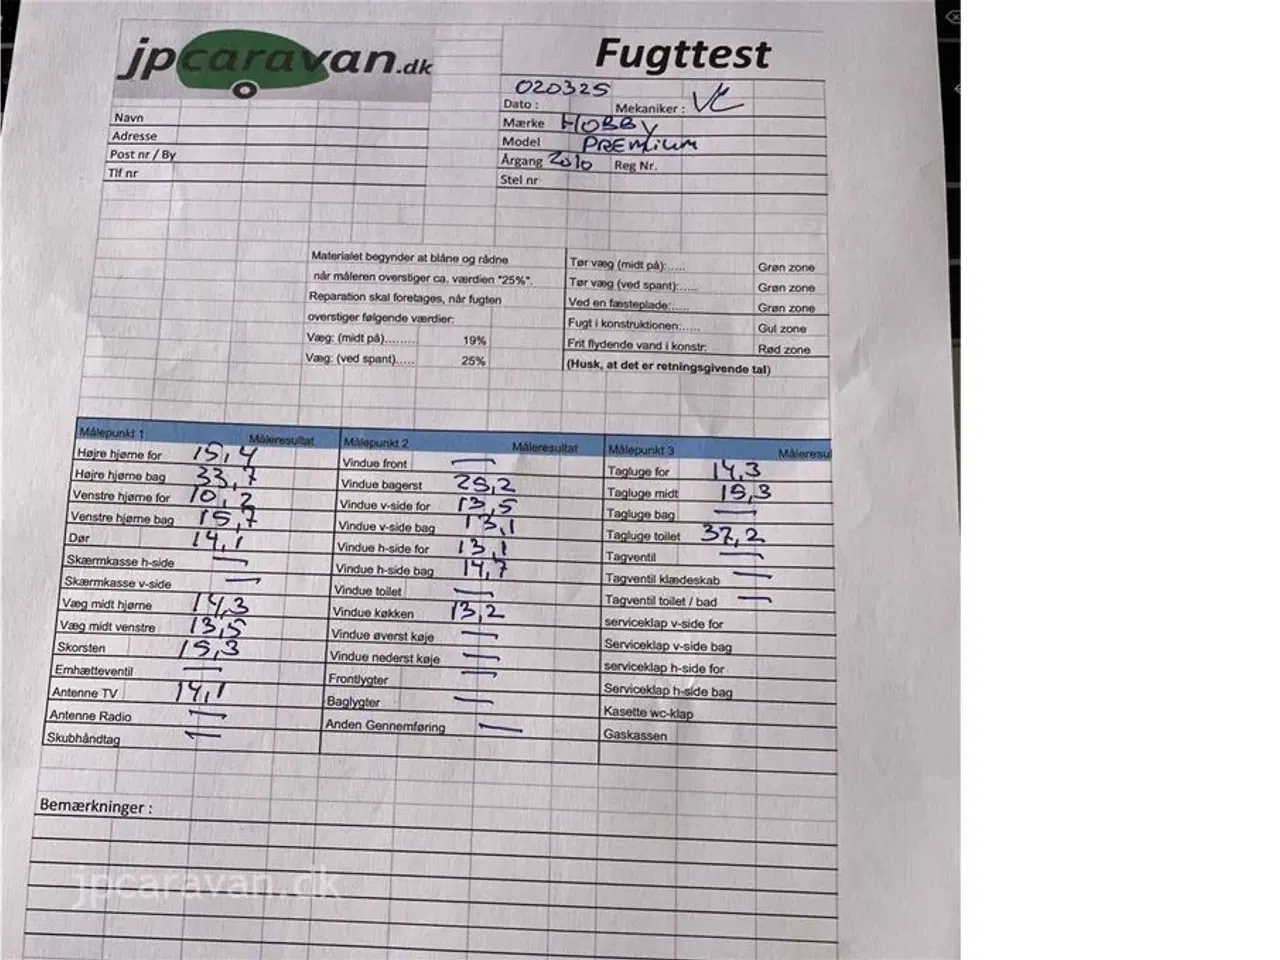 jpcaravan.dk
Fugttest
020325
Dato : Mekaniker : VC
Navn
Mærke HOBBY
Adresse
Model PREMIUM
Post nr / By
Årgang 2010 Reg Nr.
Tlf nr
Stel nr
Materialet begynder at blåne og rådne
når måleren overstiger ca. værdien "25%".
Reparation skal foretages, når fugten
overstiger følgende værdier:
Væg: (midt på)......... 19%
Væg: (ved spant)..... 25%
Tør væg (midt på):..... Grøn zone
Tør væg (ved spant):..... Grøn zone
Ved en fæsteplade:..... Grøn zone
Fugt i konstruktionen:..... Gul zone
Frit flydende vand i konstr: Rød zone
(Husk, at det er retningsgivende tal)
Målepunkt 1 Måleresultat
Højre hjørne for 15,4
Højre hjørne bag 33,7
Venstre hjørne for 10,2
Venstre hjørne bag 15,7
Dør 14,1
Skærmkasse h-side —
Skærmkasse v-side —
Væg midt hjørne 14,3
Væg midt venstre 13,5
Skorsten 15,3
Emhætteventil —
Antenne TV 14,1
Antenne Radio —
Skubhåndtag —
Målepunkt 2 Måleresultat
Vindue front —
Vindue bagerst 25,2
Vindue v-side for 13,5
Vindue v-side bag 13,1
Vindue h-side for 13,1
Vindue h-side bag 14,7
Vindue toilet —
Vindue køkken 13,2
Vindue øverst køje —
Vindue nederst køje —
Frontlygter —
Baglygter —
Anden Gennemføring —
Målepunkt 3 Måleresul
Tagluge for 14,3
Tagluge midt 15,3
Tagluge bag —
Tagluge toilet 37,2
Tagventil —
Tagventil klædeskab —
Tagventil toilet / bad —
serviceklap v-side for
Serviceklap v-side bag
serviceklap h-side for
Serviceklap h-side bag
Kasette wc-klap
Gaskassen
Bemærkninger :
jpcaravan.dk